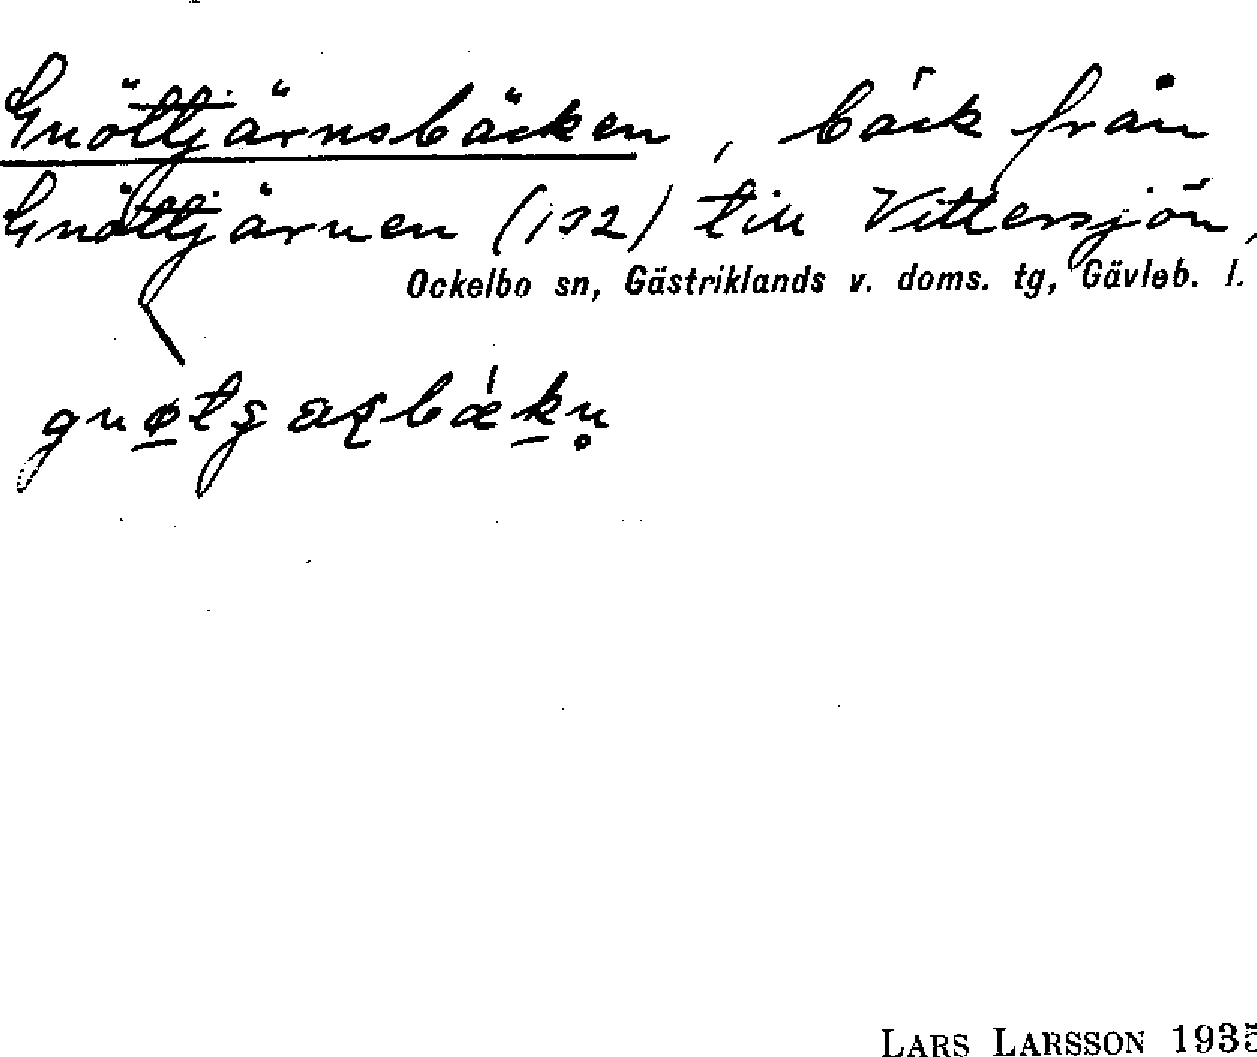 Gnöttjärnsbäcken, bäck från
Gnöttjärnen (132) till Vittersjön,
Ockelbo sn, Gästriklands v. doms. tg, Gävleb. l.
LARS LARSSON 1935